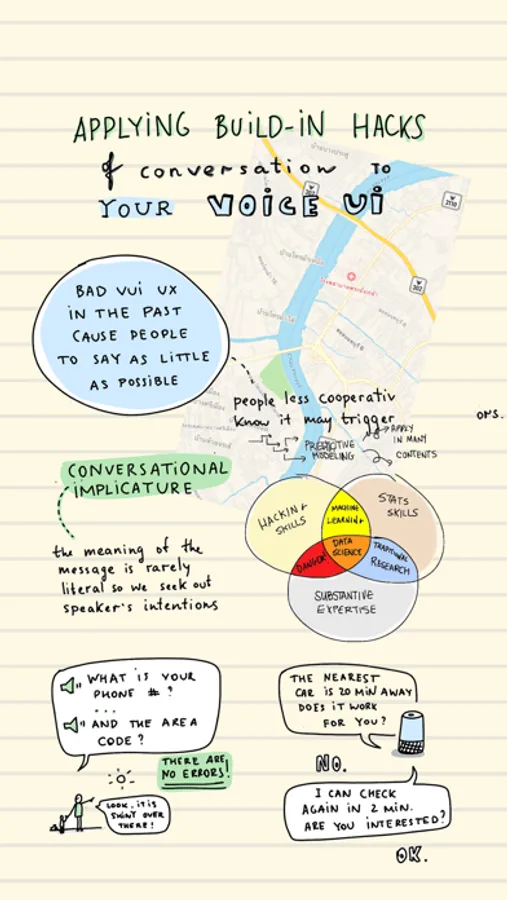 APPLYING BUILD-IN HACKS
of conversation TO
YOUR VOICE Ui
BAD VUI UX
IN THE PAST
CAUSE PEOPLE
TO SAY AS LITTLE
AS POSSIBLE
people less cooperativ
know it may trigger
PREDICTIVE
MODELING
APPLY
IN MANY
CONTENTS
OMS.
CONVERSATIONAL
IMPLICATURE
the meaning of the
message is rarely
literal so we seek out
speaker's intentions
HACKING
SKILLS
MACHINE
LEARNING
STATS
SKILLS
DATA
SCIENCE
DANGER!
TRADITIONAL
RESEARCH
SUBSTANTIVE
EXPERTISE
302
3110
302
WHAT IS YOUR
PHONE # ?
...
AND THE AREA
CODE ?
THERE ARE
NO ERRORS!
LOOK, IT IS
SHINY OVER
THERE!
THE NEAREST
CAR IS 20 MIN AWAY
DOES IT WORK
FOR YOU?
NO.
I CAN CHECK
AGAIN IN 2 MIN.
ARE YOU INTERESTED?
OK.